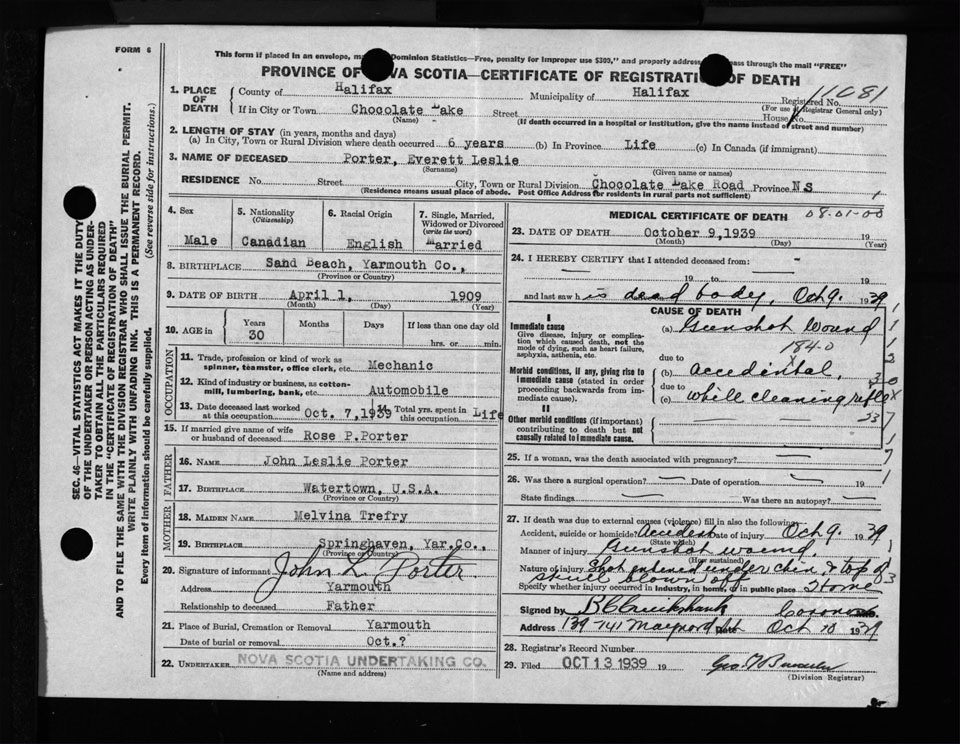 FORM 6
This form if placed in an envelope, Dominion Statistics—Free, penalty for improper use $300," and properly address pass through the mail "FREE"
PROVINCE OF NOVA SCOTIA—CERTIFICATE OF REGISTRATION OF DEATH
11081
1. PLACE OF DEATH
County of Halifax Municipality of Halifax Registered No.
(For use of Registrar General only)
If in City or Town Chocolate Lake Street House No
(Name) (If death occurred in a hospital or institution, give the name instead of street and number)
2. LENGTH OF STAY (in years, months and days)
(a) In City, Town or Rural Division where death occurred 6 years (b) In Province Life (c) In Canada (if immigrant)
3. NAME OF DECEASED Porter, Everett Leslie
(Surname) (Given name or names)
RESIDENCE No. Street City, Town or Rural Division Chocolate Lake Road Province NS
(Residence means usual place of abode. Post Office Address for residents in rural parts not sufficient)
4. Sex Male
5. Nationality (Citizenship) Canadian
6. Racial Origin English
7. Single, Married, Widowed or Divorced (write the word) Married
8. BIRTHPLACE Sand Beach, Yarmouth Co.,
(Province or Country)
9. DATE OF BIRTH April 1, 1909
(Month) (Day) (Year)
10. AGE in Years Months Days If less than one day old
30 hrs. or min.
OCCUPATION
11. Trade, profession or kind of work as spinner, teamster, office clerk, etc. Mechanic
12. Kind of industry or business, as cotton-mill, lumbering, bank, etc. Automobile
13. Date deceased last worked at this occupation Oct. 7, 1939 14. Total yrs. spent in this occupation Life
15. If married give name of wife or husband of deceased Rose P. Porter
FATHER
16. NAME John Leslie Porter
17. BIRTHPLACE Watertown, U.S.A.
(Province or Country)
MOTHER
18. MAIDEN NAME Melvina Trefry
19. BIRTHPLACE Springhaven, Yar.Co.,
(Province or Country)
20. Signature of informant John L. Porter
Address Yarmouth
Relationship to deceased Father
21. Place of Burial, Cremation or Removal Yarmouth
Date of burial or removal Oct.?
22. UNDERTAKER NOVA SCOTIA UNDERTAKING CO.
(Name and address)
MEDICAL CERTIFICATE OF DEATH 08-01-00
23. DATE OF DEATH October 9, 1939 19
(Month) (Day) (Year)
24. I HEREBY CERTIFY that I attended deceased from:
19 to 19
and last saw h is dead body, Oct 9. 1939
CAUSE OF DEATH
I
Immediate cause
Give disease, injury or complication which caused death, not the mode of dying, such as heart failure, asphyxia, asthenia, etc.
(a) Gunshot wound
1840
due to
Morbid conditions, if any, giving rise to immediate cause (stated in order proceeding backwards from immediate cause).
(b) accidental,
due to
(c) while cleaning rifle
II
Other morbid conditions (if important) contributing to death but not causally related to immediate cause.
25. If a woman, was the death associated with pregnancy?
26. Was there a surgical operation? Date of operation 19
State findings Was there an autopsy?
27. If death was due to external causes (violence) fill in also the following:
Accident, suicide or homicide? Accident Date of injury Oct 9. 1939
(State which)
Manner of injury Gunshot wound.
(How sustained)
Nature of injury Shot entered under chin & top of
skull blown off
Specify whether injury occurred in industry, in home, or in public place Home
Signed by Coroner
Address 139 Maynard Oct 10 1939
28. Registrar's Record Number
29. Filed OCT 13 1939 19
(Division Registrar)
SEC. 46—VITAL STATISTICS ACT MAKES IT THE DUTY
OF THE UNDERTAKER OR PERSON ACTING AS UNDER-
TAKER TO OBTAIN ALL THE PARTICULARS REQUIRED
IN THE "CERTIFICATE OF REGISTRATION OF DEATH"
AND TO FILE THE SAME WITH THE DIVISION REGISTRAR WHO SHALL ISSUE THE BURIAL PERMIT.
WRITE PLAINLY WITH UNFADING INK. THIS IS A PERMANENT RECORD.
Every item of information should be carefully supplied. (See reverse side for instructions.)